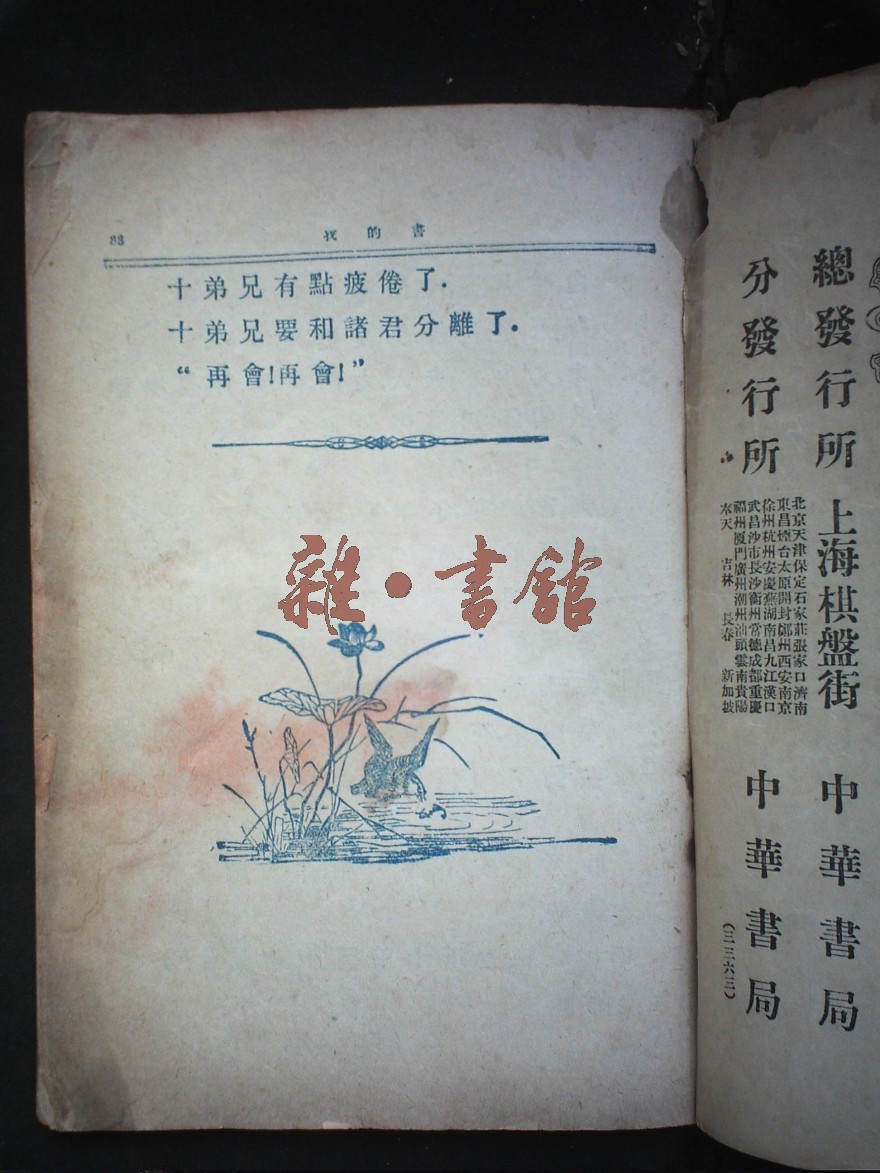 88 我的書
十弟兄有點疲倦了．
十弟兄要和諸君分離了．
“再會！再會！”
雜·書館
總發行所 上海棋盤街 中華書局
分發行所
北京天津保定石家莊張家口濟南
東昌煙台太原開封鄭州西安南京
徐州杭州安慶蕪湖南昌九江漢口
武昌沙市長沙衡州常德成都重慶
福州厦門廣州潮州汕頭雲南貴陽
奉天 吉林 長春 新加坡
中華書局
（三三六三）